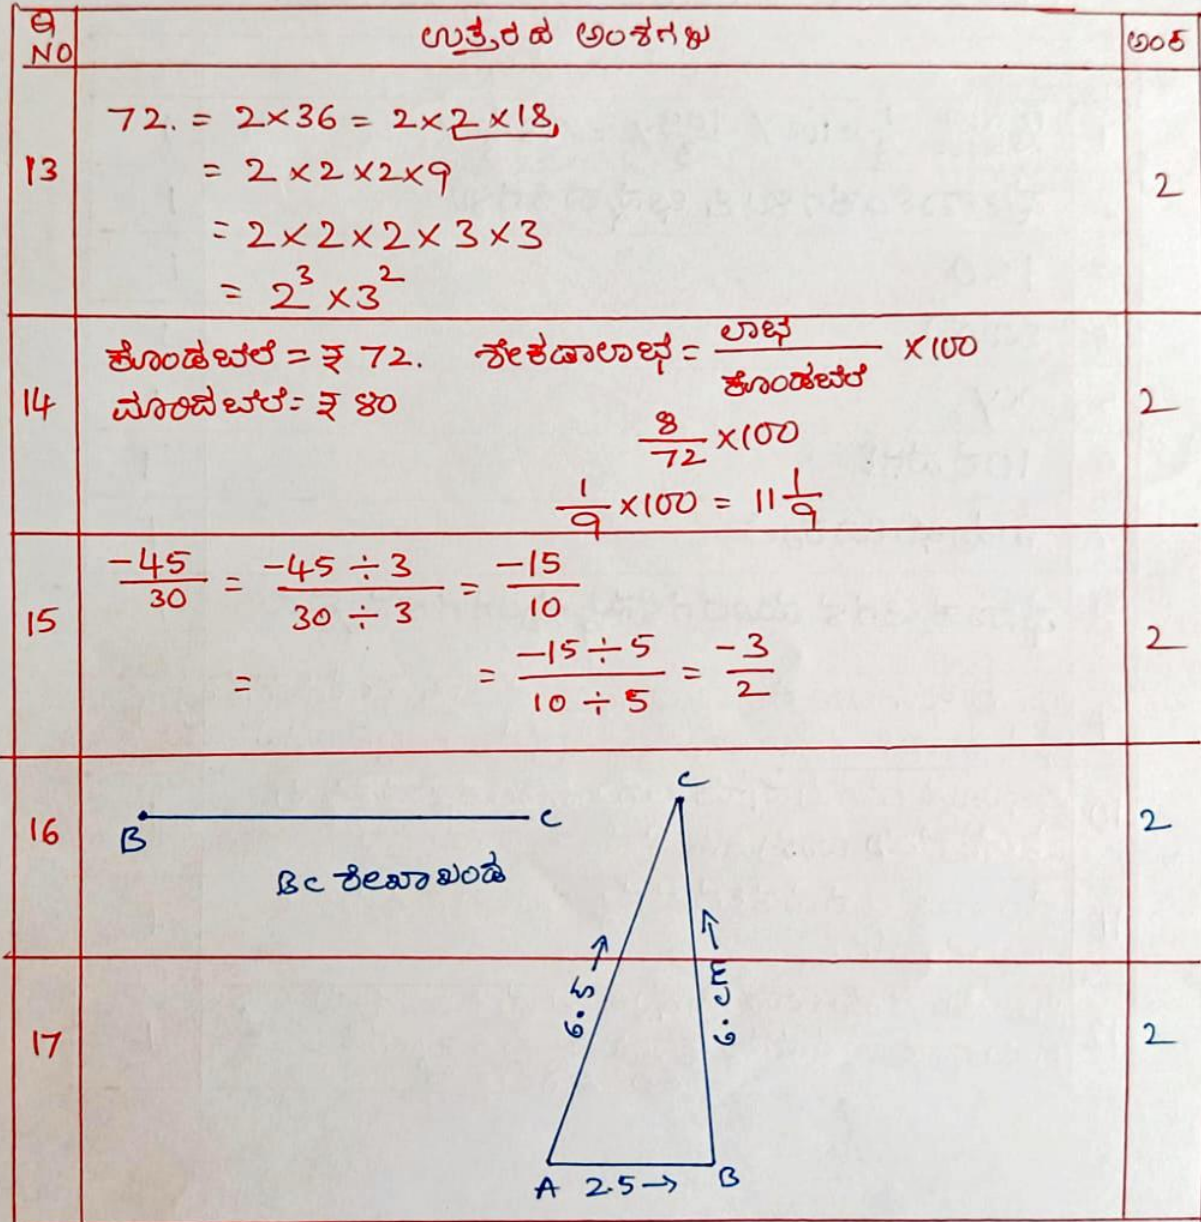 Q NO ಉತ್ತರದ ಅಂಶಗಳು ಅಂಕ
13
72. = 2×36 = 2×2×18
= 2×2×2×9
= 2×2×2×3×3
= 2³×3²
2
14
ಕೊಂಡಬೆಲೆ = ₹ 72. ಶೇಕಡಾಲಾಭ = ಲಾಭ / ಕೊಂಡಬೆಲೆ ×100
ಮಾರಿದಬೆಲೆ = ₹ 80
8/72 ×100
1/9 ×100 = 11 1/9
2
15
-45/30 = -45÷3 / 30÷3 = -15/10
= = -15÷5 / 10÷5 = -3/2
2
16
B C
BC ರೇಖಾಖಂಡ
2
17
C
6.5 →
6.cm →
A 2.5 → B
2